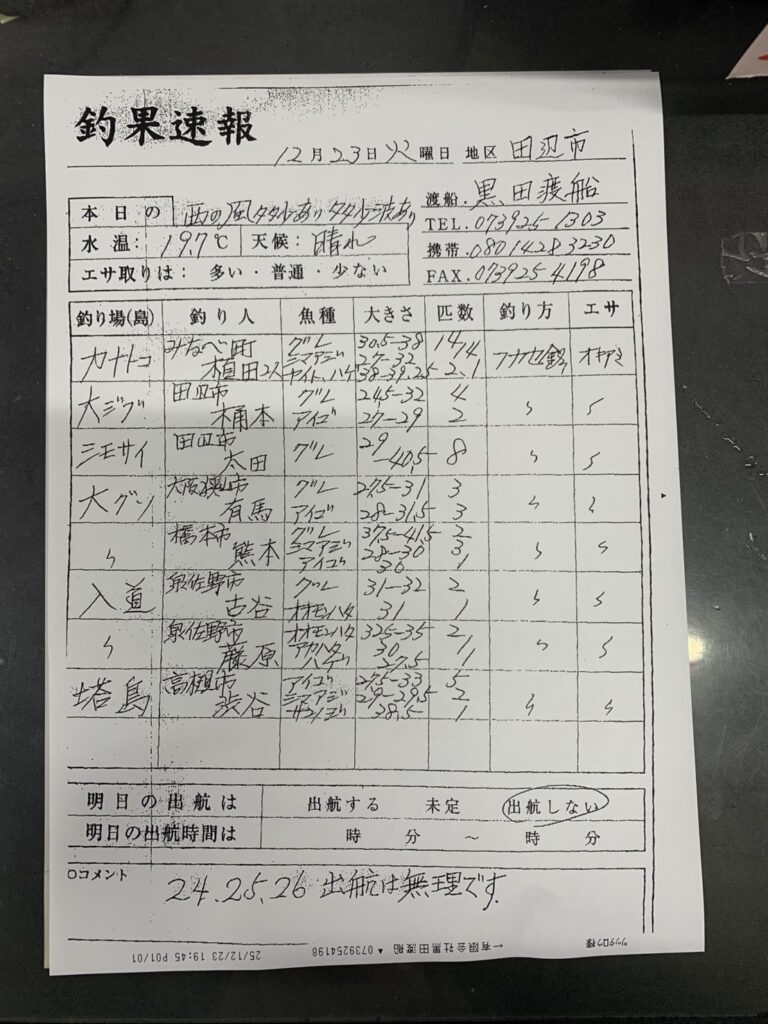 釣果速報
12月23日火曜日 地区 田辺市
渡船.黒田渡船
本日の 西の風タタルあり タタル波あり
TEL.073925 1303
水温: 19.7℃ 天候: 晴れ
携帯.08014283230
エサ取りは: 多い・普通・少ない
FAX.073925 4198
釣り場(島) 釣り人 魚種 大きさ 匹数 釣り方 エサ
カナトコ みなべ町 グレ 30.5-38 14
植田2人 シマアジ 27-32 14 フカセ釣 オキアミ
ヤイト、ハゲ 38-39、25 2、1
大ジブ 田辺市 グレ 24.5-32 4 〃 〃
桶本 アイゴ 27-29 2
ミモサイ 田辺市 グレ 29 8 〃 〃
太田 -40.5
大グン 大阪狭山市 グレ 27.5-31 3 〃 〃
有馬 アイゴ 28-31.5 3
〃 橋本市 グレ 37.5-41.5 2 〃 〃
熊本 シマアジ 28-30 3
アイゴ 30 1
入道 泉佐野市 グレ 31-32 2 〃 〃
古谷 オオモンハタ 31 1
〃 泉佐野市 オオモンハタ 32.5-35 2 〃 〃
藤原 アカハタ 30 1
ハゲ 27.5 1
塔島 高槻市 アイゴ 27.5-33 5 〃 〃
渋谷 シマアジ 29-29.5 2
サンノジ 38.5 1
明日の出航は 出航する 未定 出航しない
明日の出航時間は 時 分 ~ 時 分
○コメント
24.25.26 出航は無理です.
25/12/23 19:45 P01/01 ▲ 0739254198 ←有限会社黒田渡船
ツッタロウ様